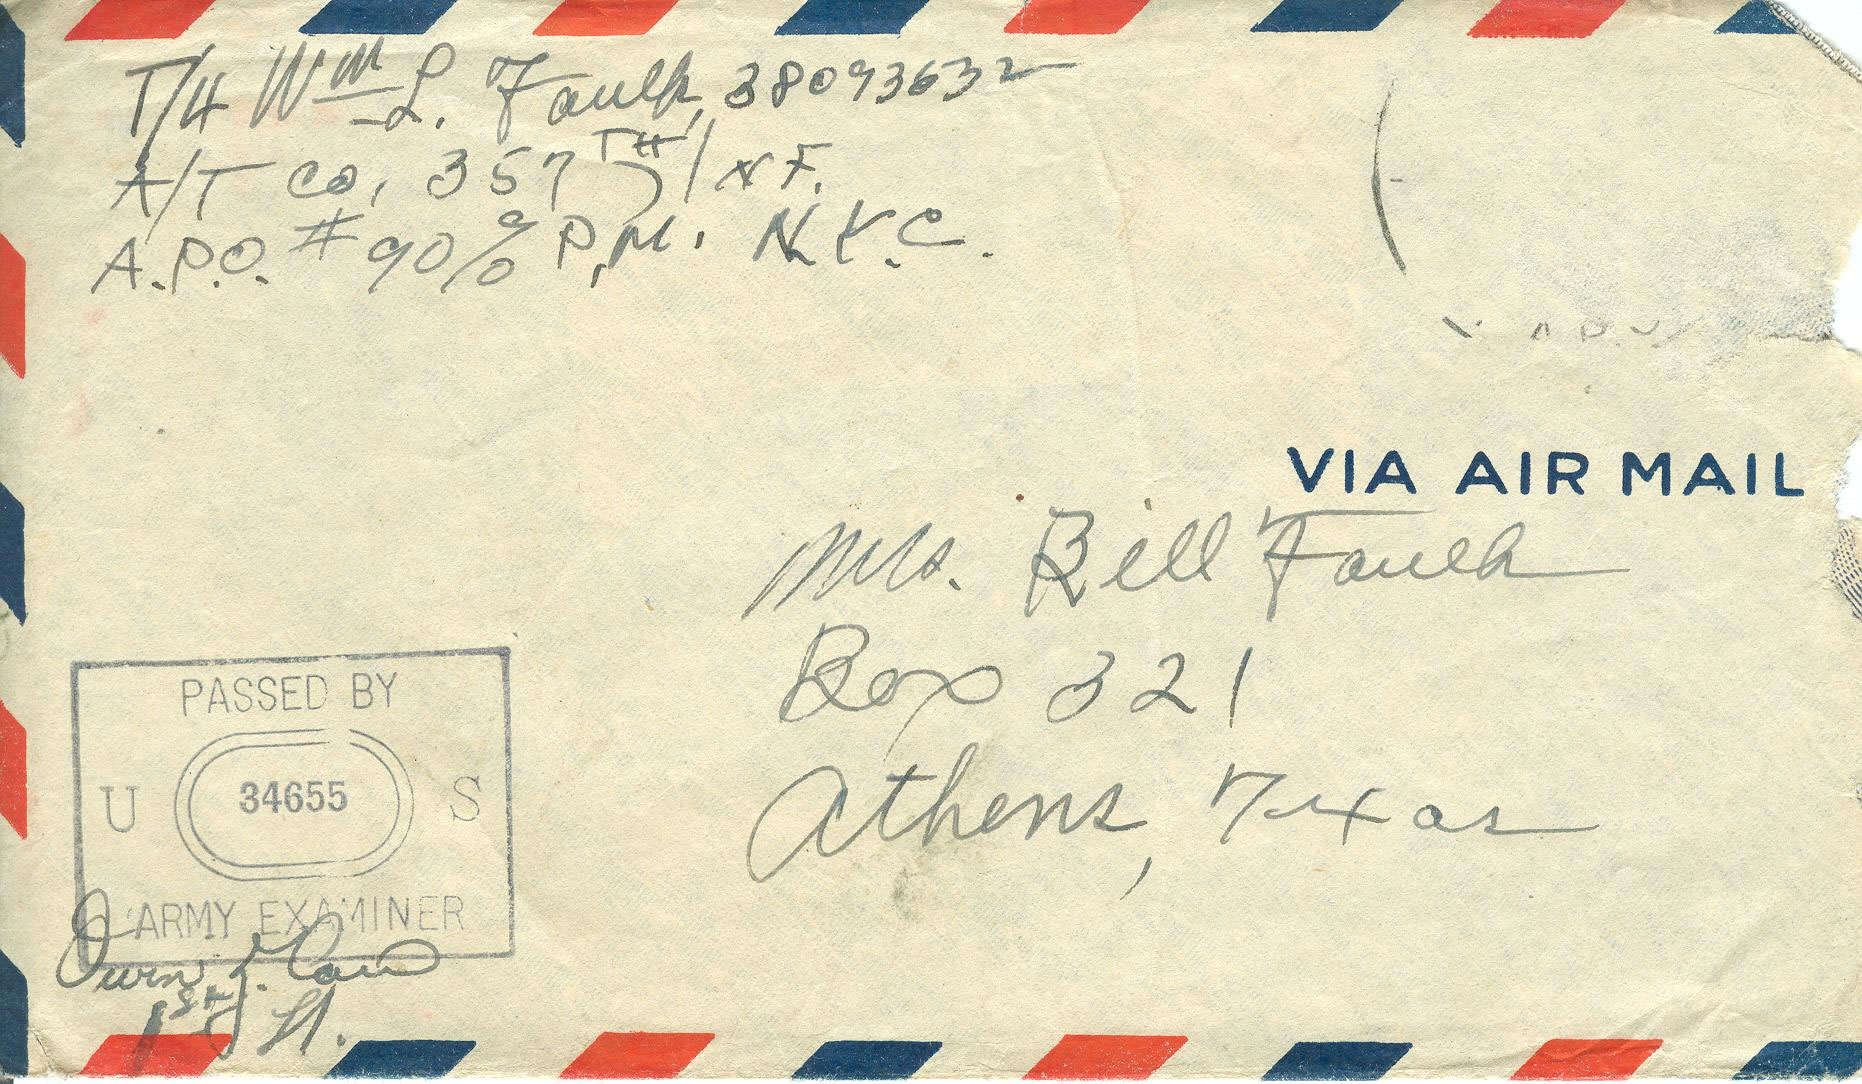 T/4 Wm L. Faulk, 38093632
A/T Co, 357TH INF.
A.P.O. #90 % P.M. N.Y.C.
VIA AIR MAIL
Mrs. Bill Faulk
Box 321
Athens, Texas
PASSED BY
U 34655 S
ARMY EXAMINER
1st Lt.